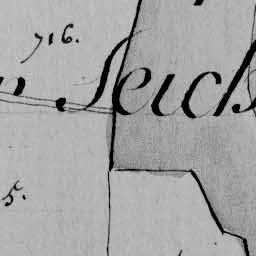 716.
n Seich
5.